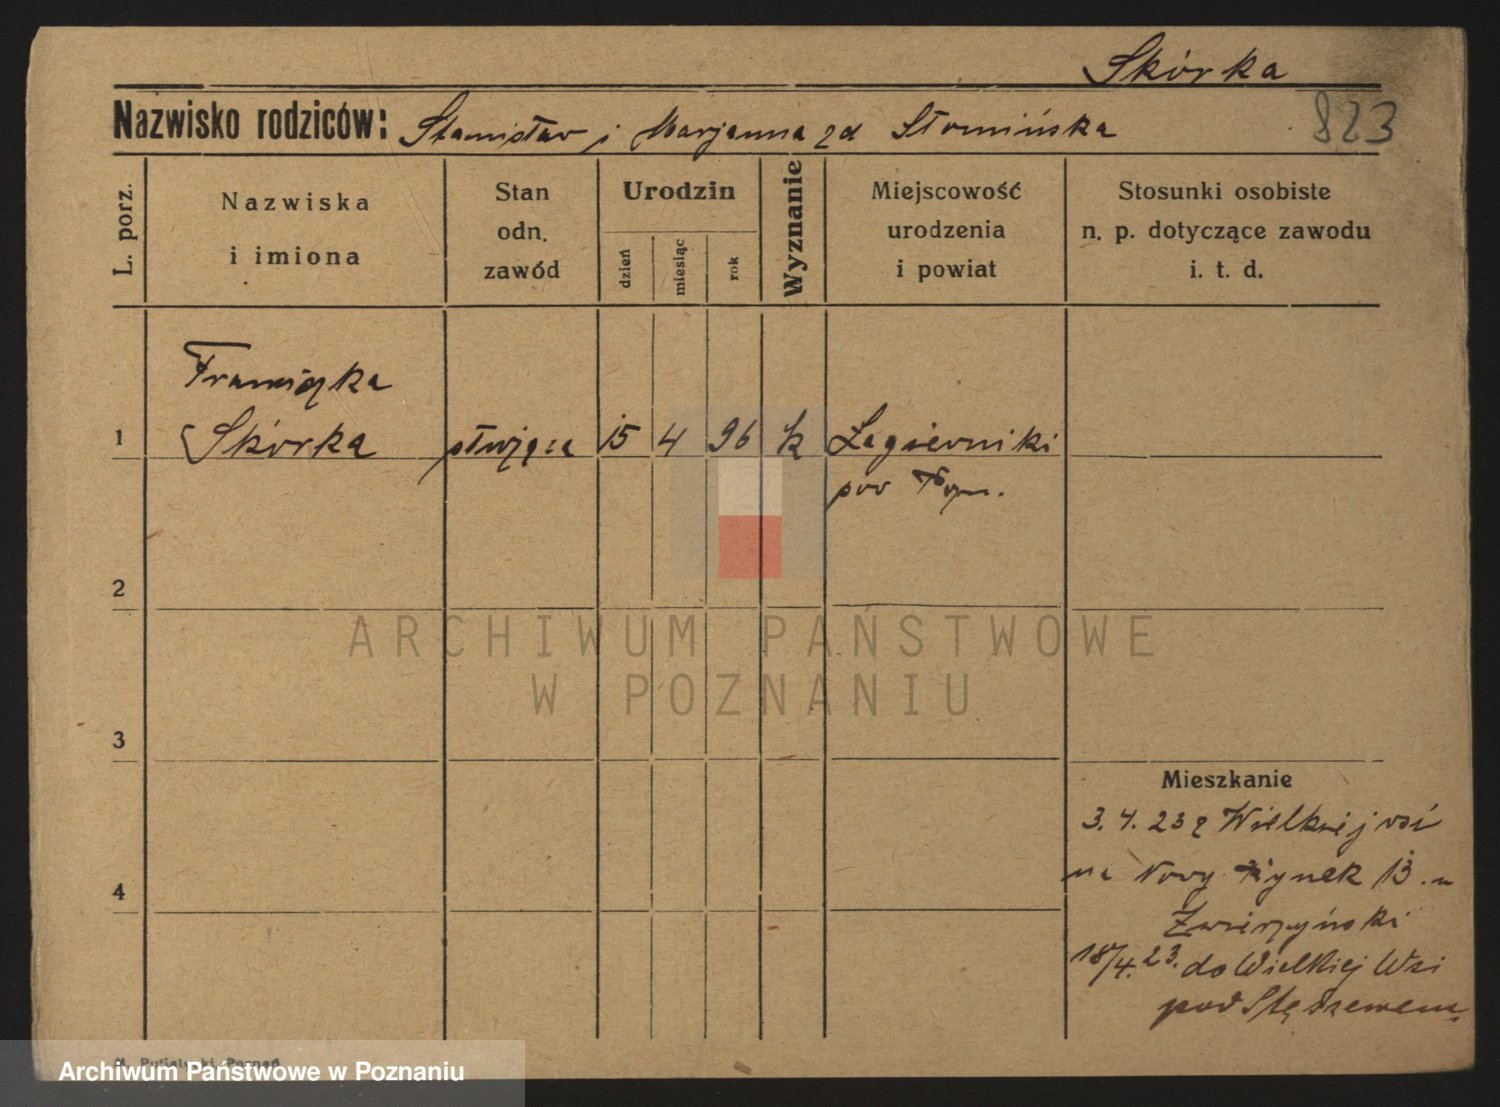 Skórka
Nazwisko rodziców: Stanisław i Marjanna zd Słomińska
823
L. porz.
Nazwiska
i imiona
Stan
odn.
zawód
Urodzin
dzień
miesiąc
rok
Wyznanie
Miejscowość
urodzenia
i powiat
Stosunki osobiste
n. p. dotyczące zawodu
i. t. d.
Franciszka
1 Skórka służąca 15 4 96 k Łagiewniki
pow
2
3
4
Mieszkanie
3. 4. 23 z Wielkiej wsi
na Nowy Rynek 13.
Zwierzyński
18/4. 23. do Wielkiej Wsi
pod Stęszewem
Poznań
ARCHIWUM PAŃSTWOWE
W POZNANIU
Archiwum Państwowe w Poznaniu